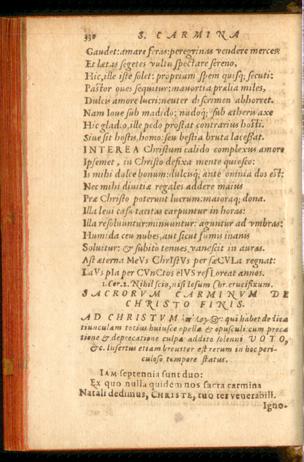 330 S. CARMINA
Gaudet: amare feras: peregrinas vendere merces
Et lætas segetes vultu spectare sereno,
Hic, ille iste solet: proprium spem quisq; secuti:
Pastor oues sequitur: mauortia prælia miles,
Dulcis amore lucri: neuter discrimen abhorret.
Nam Ioue sub madido; nudoq; sub ætheris axe
Hic gladio, ille pedo prostat contrarius hosti.
Siue sit hostis, homo: seu bestia bruta lacessat.
INTEREA Christum calido complexus amore
Ipsemet, in Christo defixa mente quiesco:
Is mihi dolce bonum: dulcïusq; ante omnia dos est:
Nec mihi diuitiæ regales addere maius
Præ Christo poterunt lucrum: maioraq; dona.
Illa leui casu tacitas carpuntur in horas:
Illa resoluuntur: minuuntur: aguntur ad vmbras:
Humida ceu nubes, aut sicut fumus inanis
Soluitur: & subito tenues vanescit in auras.
Ast æterna MeVs ChrIstVs per sæCVLa regnat:
LaVs pla per CVnCtos eIVS refLoreat annos.
1. Cor. 2. Nihil scio, nisi Iesum Chr. crucifixum.
SACRORVM CARMINVM DE
CHRISTO FINIS.
AD CHRISTVM qui habet
tiunculam totius huiusce opellæ & opusculi cum preca
tione & deprecatione culpæ addito solenni VOTO,
&c. Insertus etiam breuiter est rerum in hoc peri-
culoso tempore status.
IAM septennia sunt duo:
Ex quo nulla quidem nos sacra carmina
Natali dedimus, CHRISTE, tuo ter venerabili.
Igno-